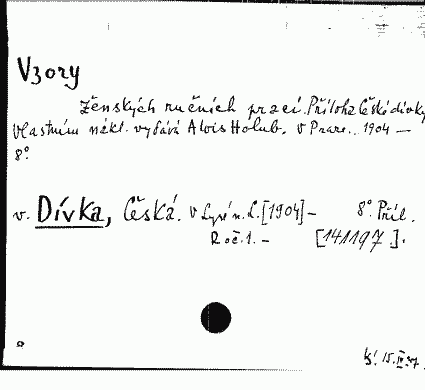 Vzory
ženských ručních prací. Příloha České dívky
Vlastním nákl. vydává Alois Holub. V Praze.. 1904 —
8°.
v. Dívka, Česká. V Lysé n. L. [1904] – 8°. Příl.
Roč. 1. – [141197].
15. IV. 47.